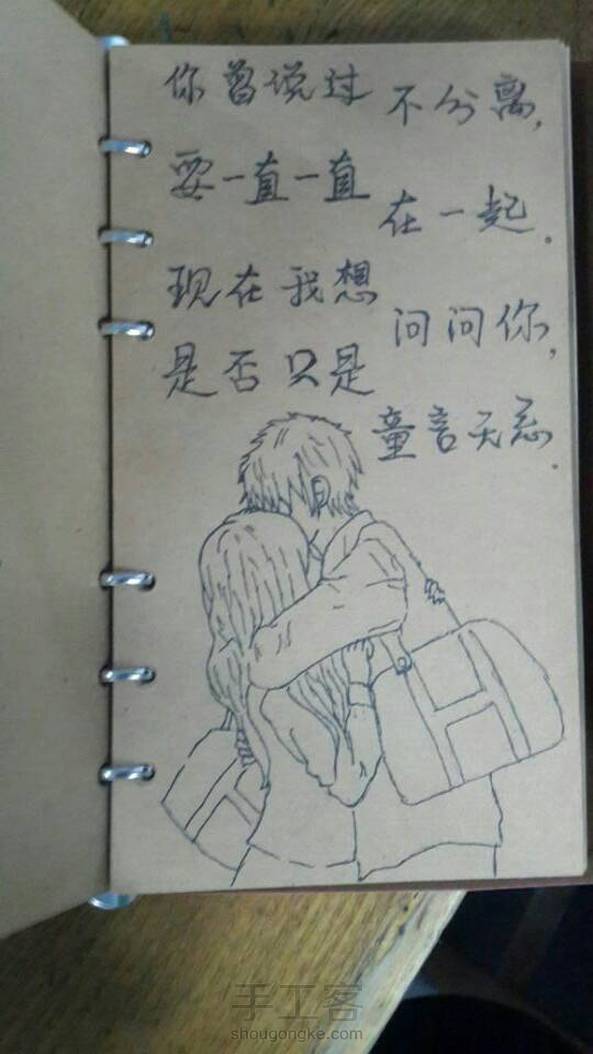 你曾说过不分离,
要一直一直在一起.
现在我想问问你,
是否只是童言无忌.
手工客
shougongke.com